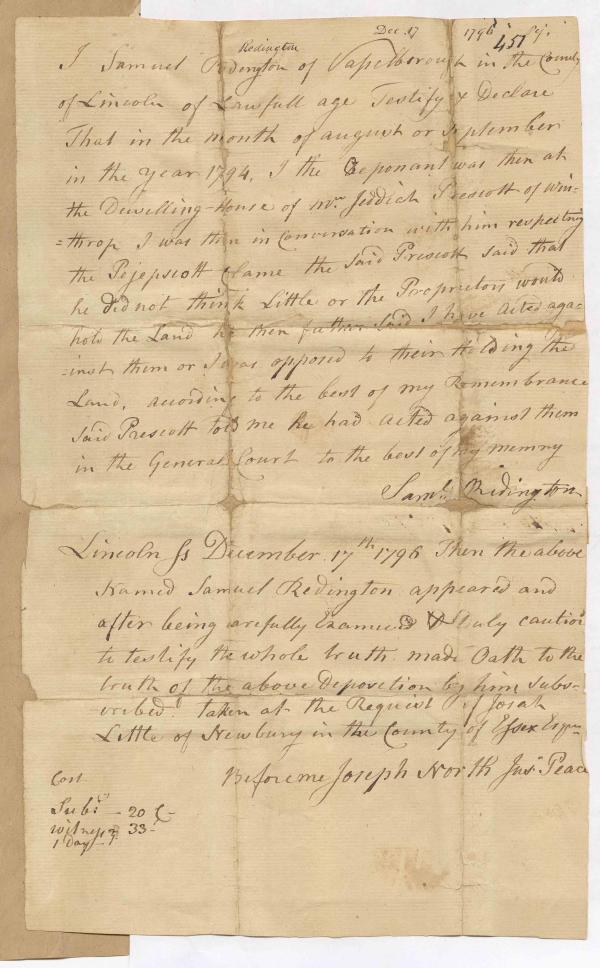 Dec. 17 1796 457
Redington
I Samuel Redington of Vasselborough in the County
of Lincoln of Lawfull age Testify & Declare
That in the month of august or September
in the year 1794, I the Deponant was then at
the Dwelling-House of Mr. Jeddiah Prescott of Win-
=throp I was then in Conversation with him respecting
the Pejepscott Clame the Said Prescott said that
he did not think Little or the Proprietors would
hold the Land he then further Said I have acted aga-
=inst them or I was opposed to their Holding the
Land, according to the best of my Remembrance
Said Prescott told me he had acted against them
in the General Court to the best of my memry
Saml. Redington
Lincoln Ss December 17th 1796 Then the above
Named Samuel Redington appeared and
after being carefully Examined & Duly caution
to testify the whole truth made Oath to the
truth of the above Deposition by him Subs-
cribed. taken at the Request of Josiah
Little of Newbury in the County of Essex Esqr.
Before me Joseph North Jus. Peace
Cost
Sub. - 20 C-
witness 33-
1 Day